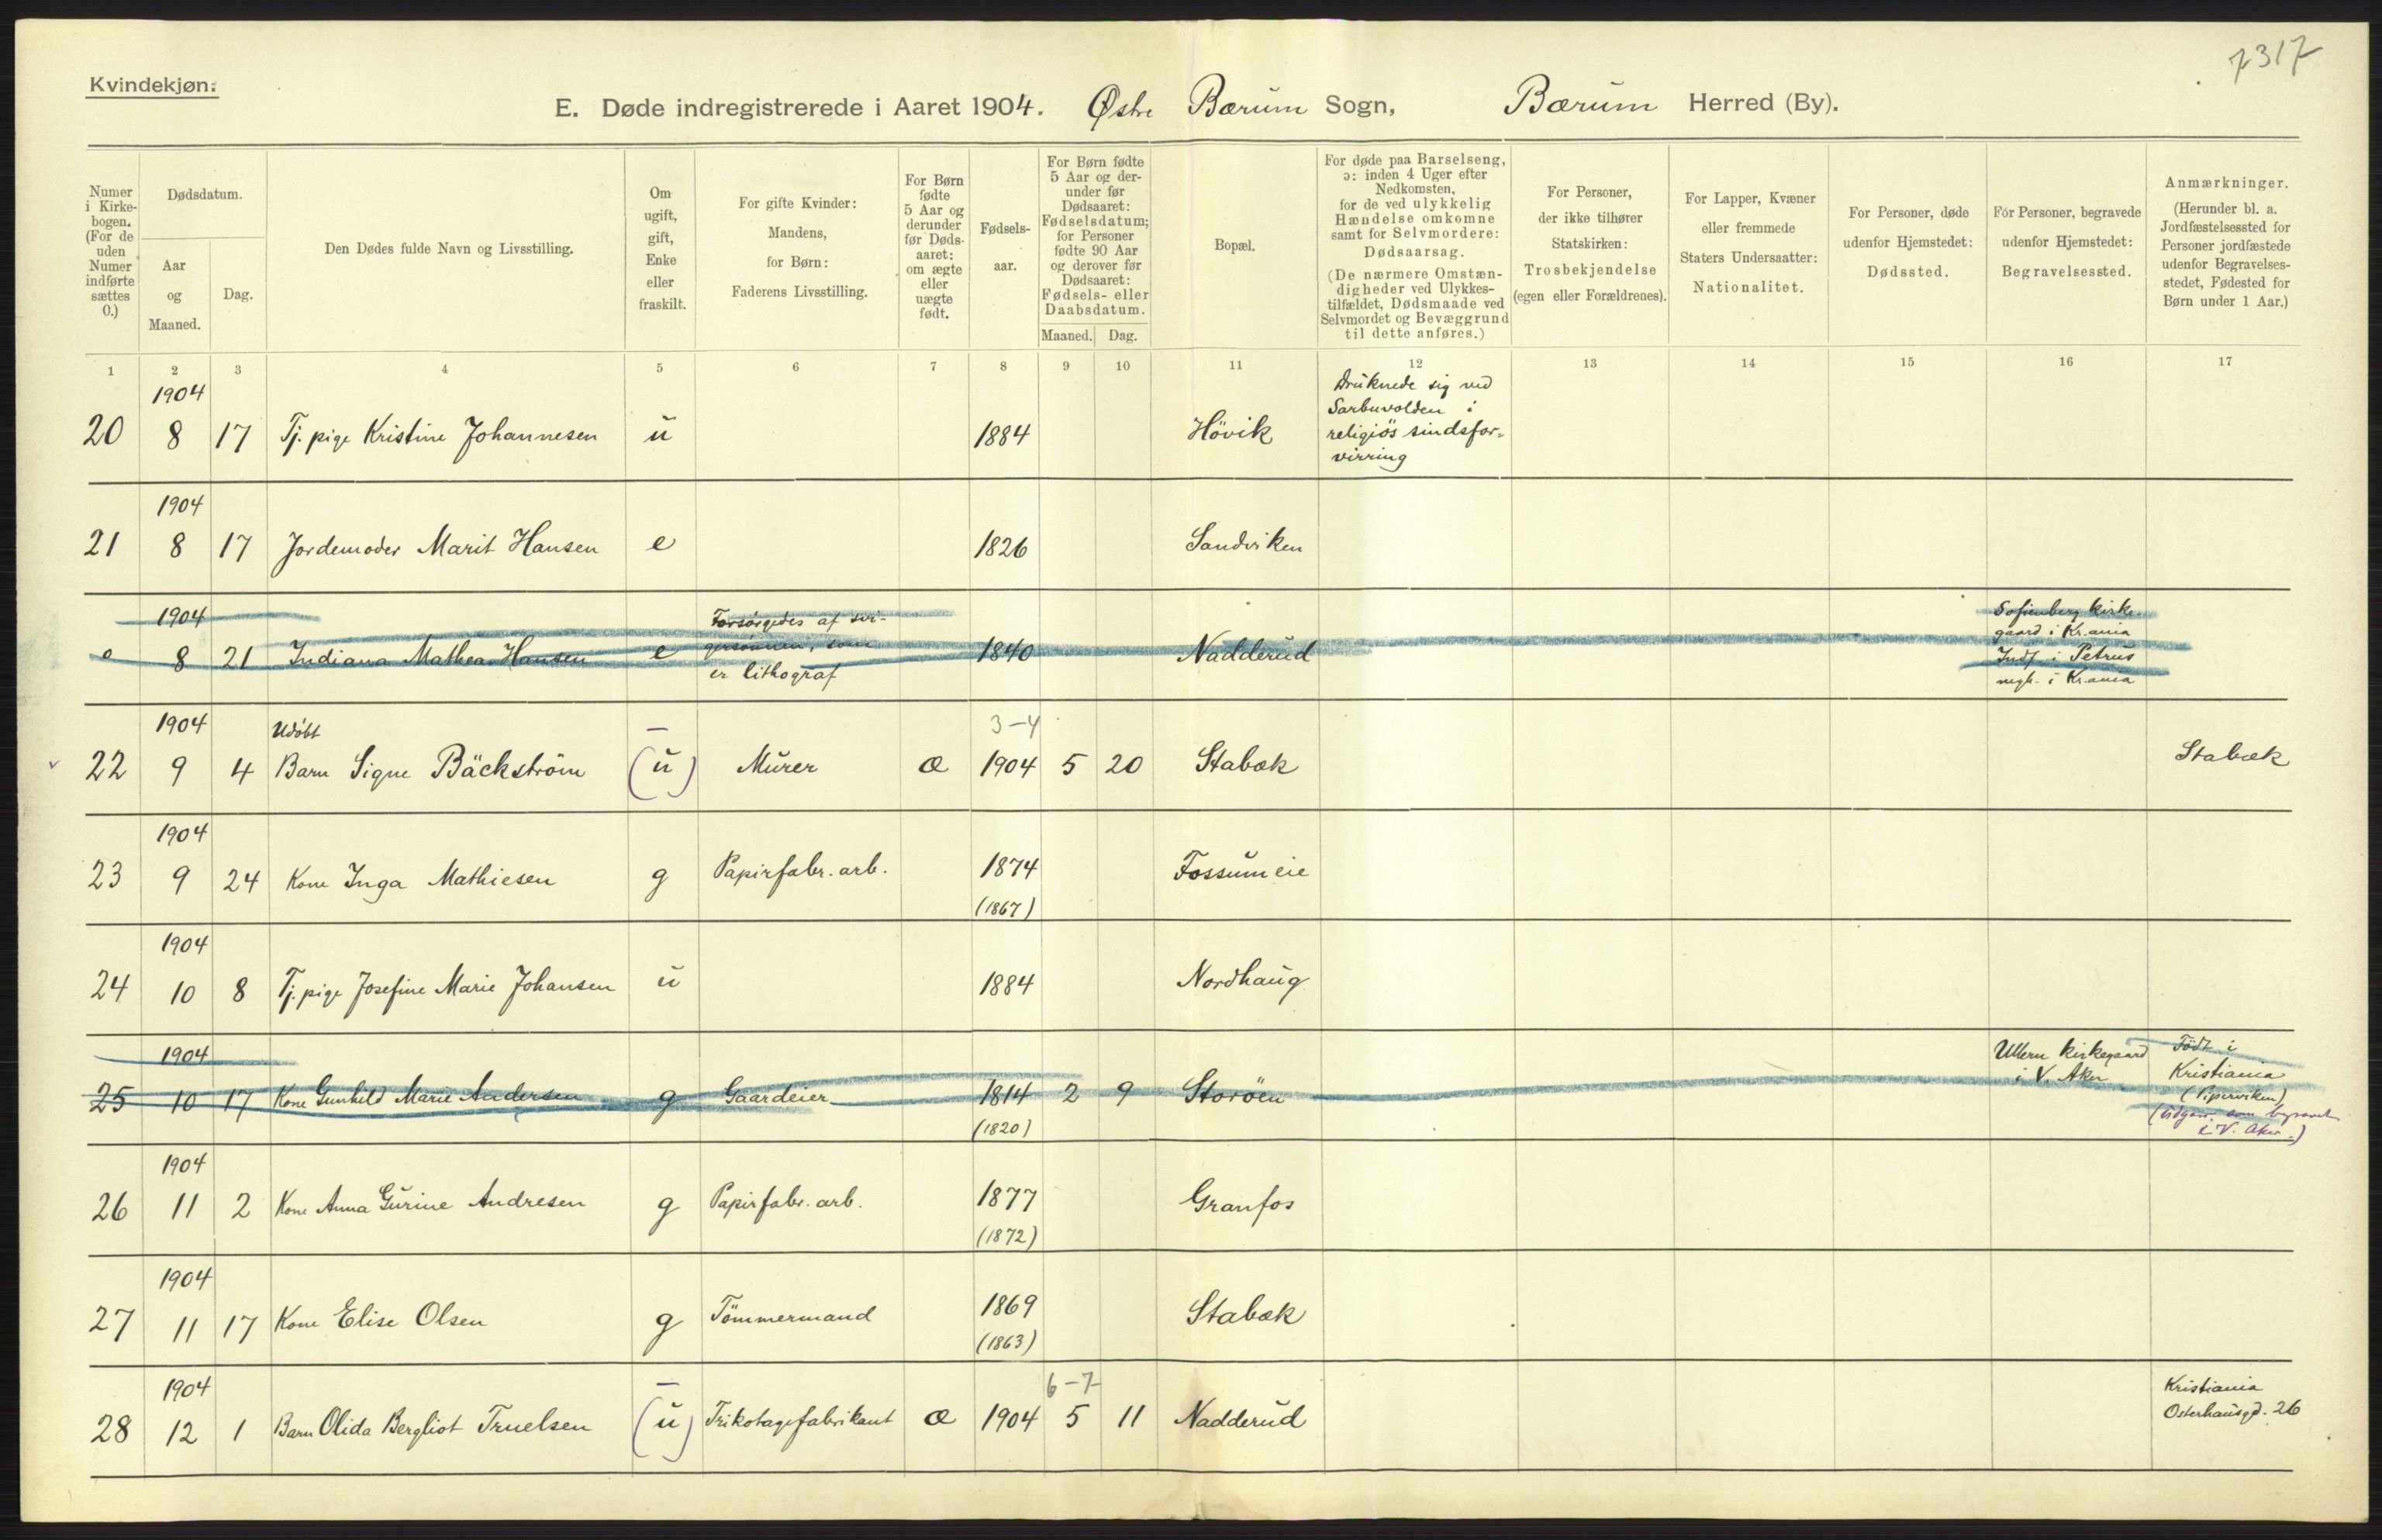 7317
Kvindekjøn:
E. Døde indregistrerede i Aaret 1904. Østre Bærum Sogn, Bærum Herred (By).
Numer
i Kirke-
bogen.
(For de
uden
Numer
indførte
sættes
0.)
Dødsdatum.
Aar
og
Maaned.
Dag.
Den Dødes fulde Navn og Livsstilling.
Om
ugift,
gift,
Enke
eller
fraskilt.
For gifte Kvinder:
Mandens,
for Børn:
Faderens Livsstilling.
For Børn
fødte
5 Aar og
derunder
før Døds-
aaret:
om ægte
eller
uægte
født.
Fødsels-
aar.
For Børn fødte
5 Aar og der-
under før
Dødsaaret:
Fødselsdatum;
for Personer
fødte 90 Aar
og derover før
Dødsaaret:
Fødsels- eller
Daabsdatum.
Maaned. Dag.
Bopæl.
For døde paa Barselseng,
ɔ: inden 4 Uger efter
Nedkomsten,
for de ved ulykkelig
Hændelse omkomne
samt for Selvmordere:
Dødsaarsag.
(De nærmere Omstæn-
digheder ved Ulykkes-
tilfældet, Dødsmaade ved
Selvmordet og Bevæggrund
til dette anføres.)
For Personer,
der ikke tilhører
Statskirken:
Trosbekjendelse
(egen eller Forældrenes).
For Lapper, Kvæner
eller fremmede
Staters Undersaatter:
Nationalitet.
For Personer, døde
udenfor Hjemstedet:
Dødssted.
For Personer, begravede
udenfor Hjemstedet:
Begravelsessted.
Anmærkninger.
(Herunder bl. a.
Jordfæstelsessted for
Personer jordfæstede
udenfor Begravelses-
stedet, Fødested for
Børn under 1 Aar.)
1 2 3 4 5 6 7 8 9 10 11 12 13 14 15 16 17
1904
20 8 17 Tj. pige Kristine Johannesen u 1884 Hövik
Druknede sig ved
Sarbuvolden i
religiös sindsfor-
virring
1904
21 8 17 Jordemoder Marit Hansen e 1826 Sandviken
1904
0 8 21 Indiana Mathea Hansen e
Forsörgedes af svi-
gersönnen, som
er lithograf
1840 Nadderud
Sofienberg kirke-
gaard i Kr.ania
Indf. i Petrus
mgh. i Kr.ania
1904 Udöbt – 3-4
22 9 4 Barn Signe Bäckström (u) Murer æ 1904 5 20 Stabæk Stabæk
1904
23 9 24 Kone Inga Mathiesen g Papirfabr. arb. 1874 Fossum eie
(1867)
1904
24 10 8 Tj. pige Josefine Marie Johansen u 1884 Nordhaug
1904
25 10 17 Kone Gunhild Marie Andersen g Gaardeier 1814 2 9 Storöen
(1820)
Ullern kirkegaard
i V. Aker
Född i
Kristiania
(Piperviken)
(Udgaar som begravet
i V. Aker.)
1904
26 11 2 Kone Anna Gurine Andresen g Papirfabr. arb. 1877 Granfos
(1872)
1904
27 11 17 Kone Elise Olsen g Tömmermand 1869 Stabæk
(1863)
1904 – 6-7
28 12 1 Barn Olida Bergliot Truelsen (u) Trikotagefabrikant æ 1904 5 11 Nadderud
Kristiania
Osterhausgd. 26